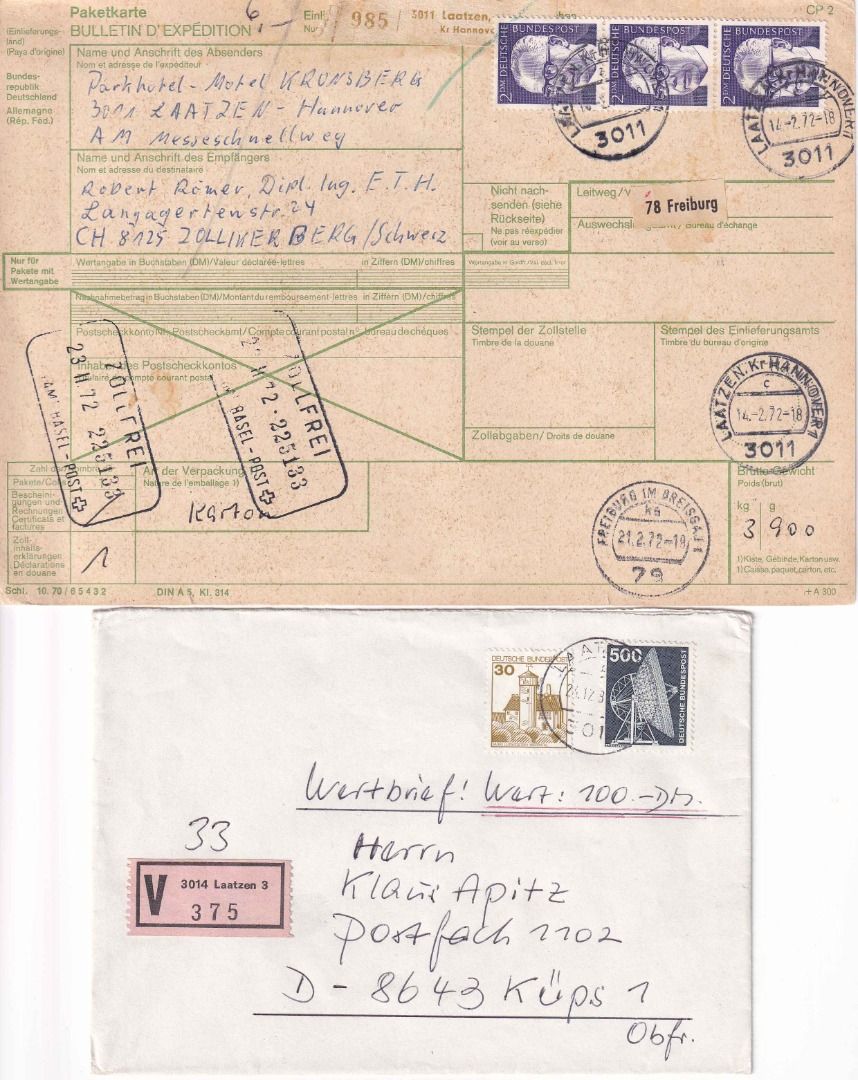 Paketkarte
BULLETIN D'EXPÉDITION
6,-
985
3011 Laatzen,
Kr Hannover
CP 2
(Einlieferungs-
land)
(Pays d'origine)
Bundes-
republik
Deutschland
Allemagne
(Rép. Féd.)
Name und Anschrift des Absenders
Nom et adresse de l'expéditeur
Parkhotel - Motel KRONSBERG
3011 LAATZEN - Hannover
AM Messeschnellweg
2 DM DEUTSCHE BUNDESPOST
2 DM DEUTSCHE BUNDESPOST
2 DM DEUTSCHE BUNDESPOST
3011
LAATZEN, Kr HANNOVER 1
14.-2.72-18
3011
Name und Anschrift des Empfängers
Nom et adresse du destinataire
Robert Römer, Dipl. Ing. E.T.H.
Langagertenstr. 24
CH 8125 ZOLLIKERBERG/Schweiz
Nicht nach-
senden (siehe
Rückseite)
Ne pas réexpédier
(voir au verso)
Leitweg/V
78 Freiburg
Auswechs
Bureau d'échange
Nur für
Pakete mit
Wertangabe
Wertangabe in Buchstaben (DM)/Valeur déclarée-lettres
in Ziffern (DM)/chiffres
Nachnahmebetrag in Buchstaben (DM)/Montant du remboursement-lettres
in Ziffern (DM)/chiffres
Postscheckkonto Nr./Postscheckamt/Compte courant postal n°- bureau de chèques
Inhaber des Postscheckkontos
Titulaire du compte courant postal
Stempel der Zollstelle
Timbre de la douane
Stempel des Einlieferungsamts
Timbre du bureau d'origine
LAATZEN, Kr HANNOVER 1
c
14.-2.72-18
3011
Zollabgaben/ Droits de douane
ZOLLFREI
23 II 72 · 225133
BASEL-POST
ZOLLFREI
II 72 · 225133
BASEL-POST
Pakete/Colis
Bescheini-
gungen und-
Rechnungen
Certificats et
factures
Zoll-
inhalts-
erklärungen
Déclarations
en douane
1
Art der Verpackung
Nature de l'emballage 1)
Karton
FREIBURG IM BREISGAU 1
ka
21.2.72-18
79
Brutto-Gewicht
Poids (brut)
kg
g
3 900
1) Kiste, Gebinde, Karton usw.
1) Caisse, paquet, carton, etc.
Schl. 10. 70 / 6 5 4 3 2
DIN A 5, Kl. 314
+ A 300
DEUTSCHE BUNDESPOST
30
500
DEUTSCHE BUNDESPOST
Wertbrief! Wert: 100.-DM.
33
V
3014 Laatzen 3
375
Herrn
Klaus Apitz
Postfach 1102
D - 8643 Küps 1
Obfr.